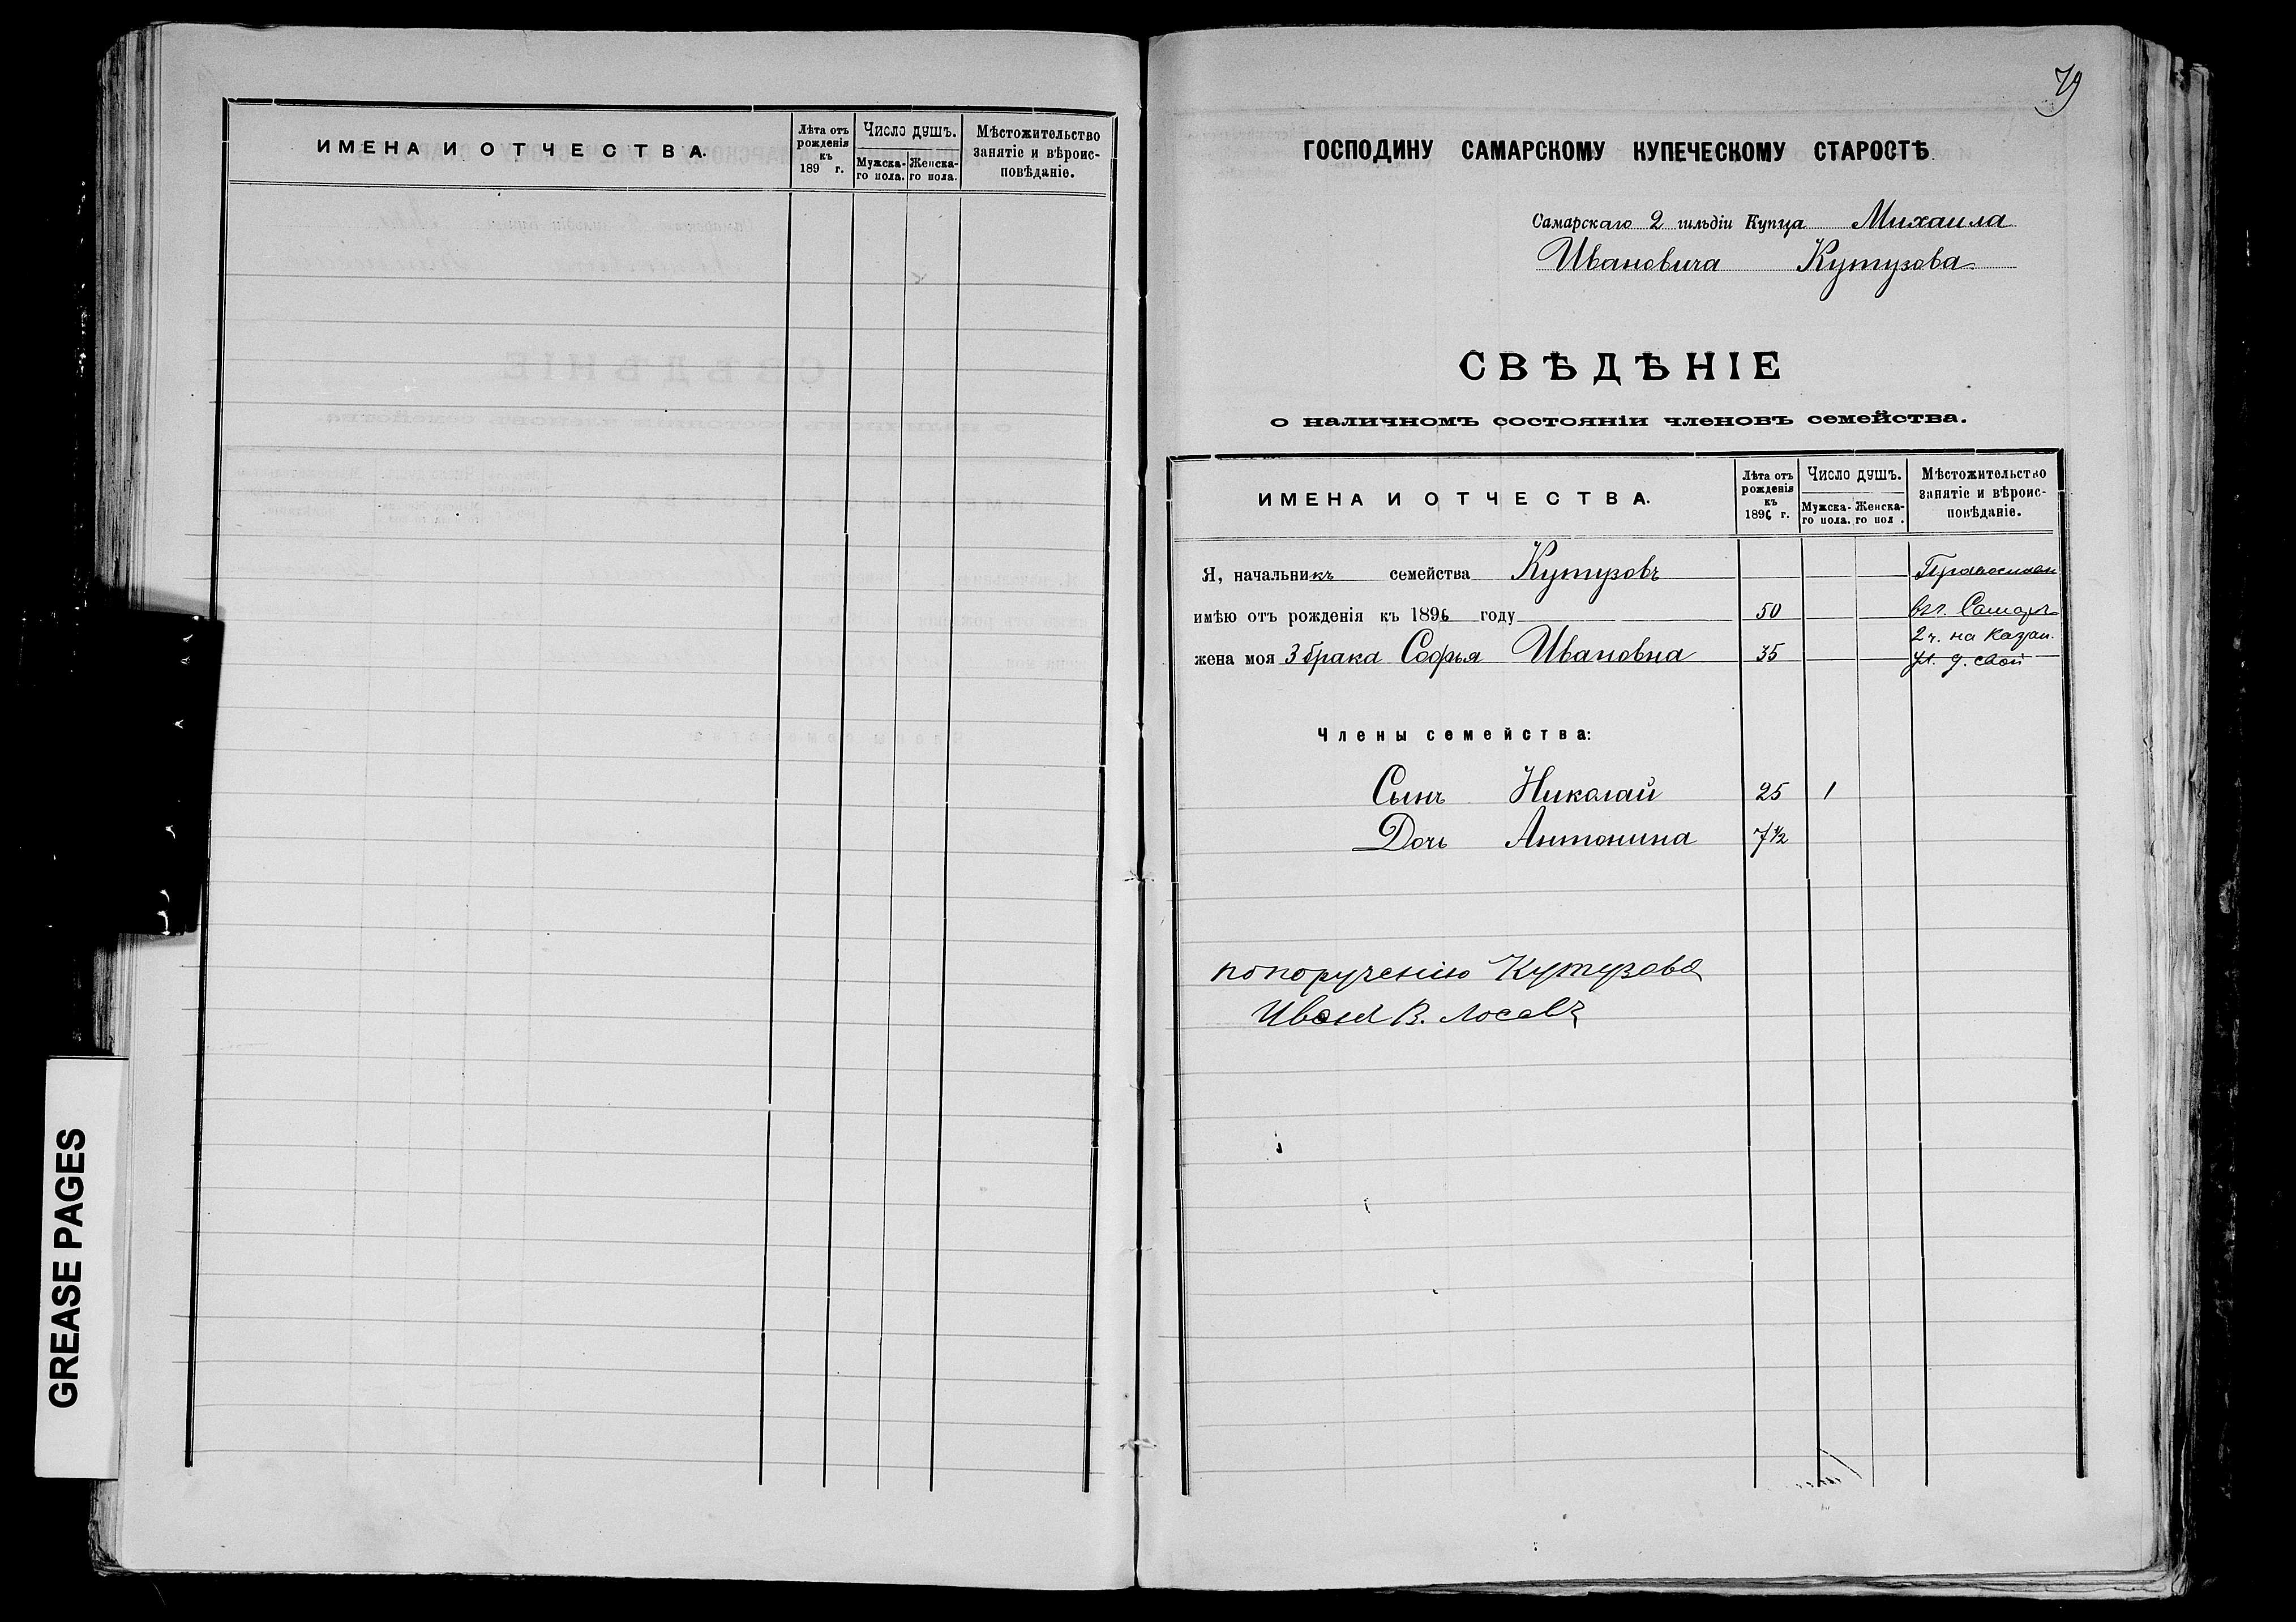 ИМЕНА И ОТЧЕСТВА.
Лѣта отъ рожденія къ 189 г.
Число душъ.
Мужска-го пола.
Женска-го пола.
Мѣстожительство занятіе и вѣроис-повѣданіе.
GREASE PAGES
79
ГОСПОДИНУ САМАРСКОМУ КУПЕЧЕСКОМУ СТАРОСТѢ
Самарскаго 2 гильдіи Купца Михаила
Ивановича Кутузова
СВѢДѢНІЕ
о наличномъ состояніи членовъ семейства.
ИМЕНА И ОТЧЕСТВА.
Лѣта отъ рожденія къ 1896 г.
Число душъ.
Мужска-го пола.
Женска-го пол .
Мѣстожительство занятіе и вѣроис-повѣданіе.
Я, начальникъ семейства Кутузовъ
имѣю отъ рожденія къ 1896 году 50 въ г. Самарѣ
2 ч. на Казан.
жена моя 3 брака Софья Ивановна 35 ул. д. свой
Члены семейства:
Сынъ Николай 25 1
Дочь Антонина 7½
по порученію Кутузова
Иванъ В. Лосевъ